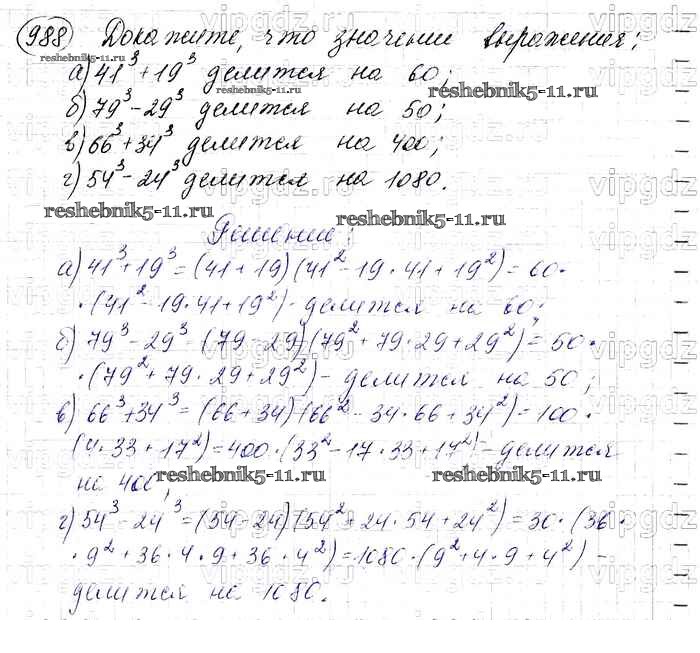 988 Докажите, что значение выражения:
а) 41³ + 19³ делится на 60;
б) 79³ - 29³ делится на 50;
в) 66³ + 34³ делится на 400;
г) 54³ - 24³ делится на 1080.
Решение:
а) 41³ + 19³ = (41 + 19)(41² - 19 · 41 + 19²) = 60 ·
· (41² - 19 · 41 + 19²) - делится на 60;
б) 79³ - 29³ = (79 - 29)(79² + 79 · 29 + 29²) = 50 ·
· (79² + 79 · 29 + 29²) - делится на 50;
в) 66³ + 34³ = (66 + 34)(66² - 34 · 66 + 34²) = 100 ·
(4 · 33 + 17²) = 400 · (33² - 17 · 33 + 17²) - делится
на 400;
г) 54³ - 24³ = (54 - 24)(54² + 24 · 54 + 24²) = 30 · (36 ·
· 9² + 36 · 4 · 9 + 36 · 4²) = 1080 · (9² + 4 · 9 + 4²) -
делится на 1080.
reshebnik5-11.ru
reshebnik5-11.ru
reshebnik5-11.ru
reshebnik5-11.ru
reshebnik5-11.ru
reshebnik5-11.ru
reshebnik5-11.ru
vipgdz
vipgdz
vipgdz
vipgdz